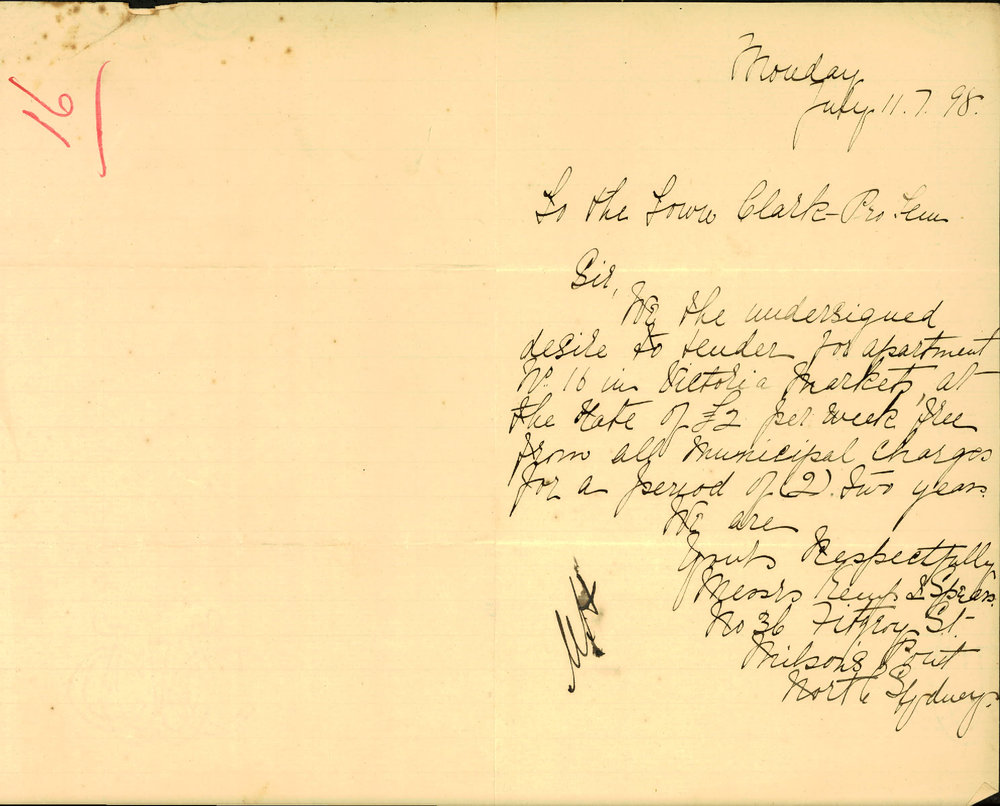 16
Monday
July 11.7.98.
To the Town Clark-Pro. Tem
Sir,
We the undersigned
desire to tender for apartment
No. 16 in Victoria Markets, at
the Rate of £2 per week free
from all Municipal Charges
for a period of (2) two years.
We are
Yours Respectfully
Messrs & Spears.
No 36 Fitzroy St-
Milson's Point
North Sydney.